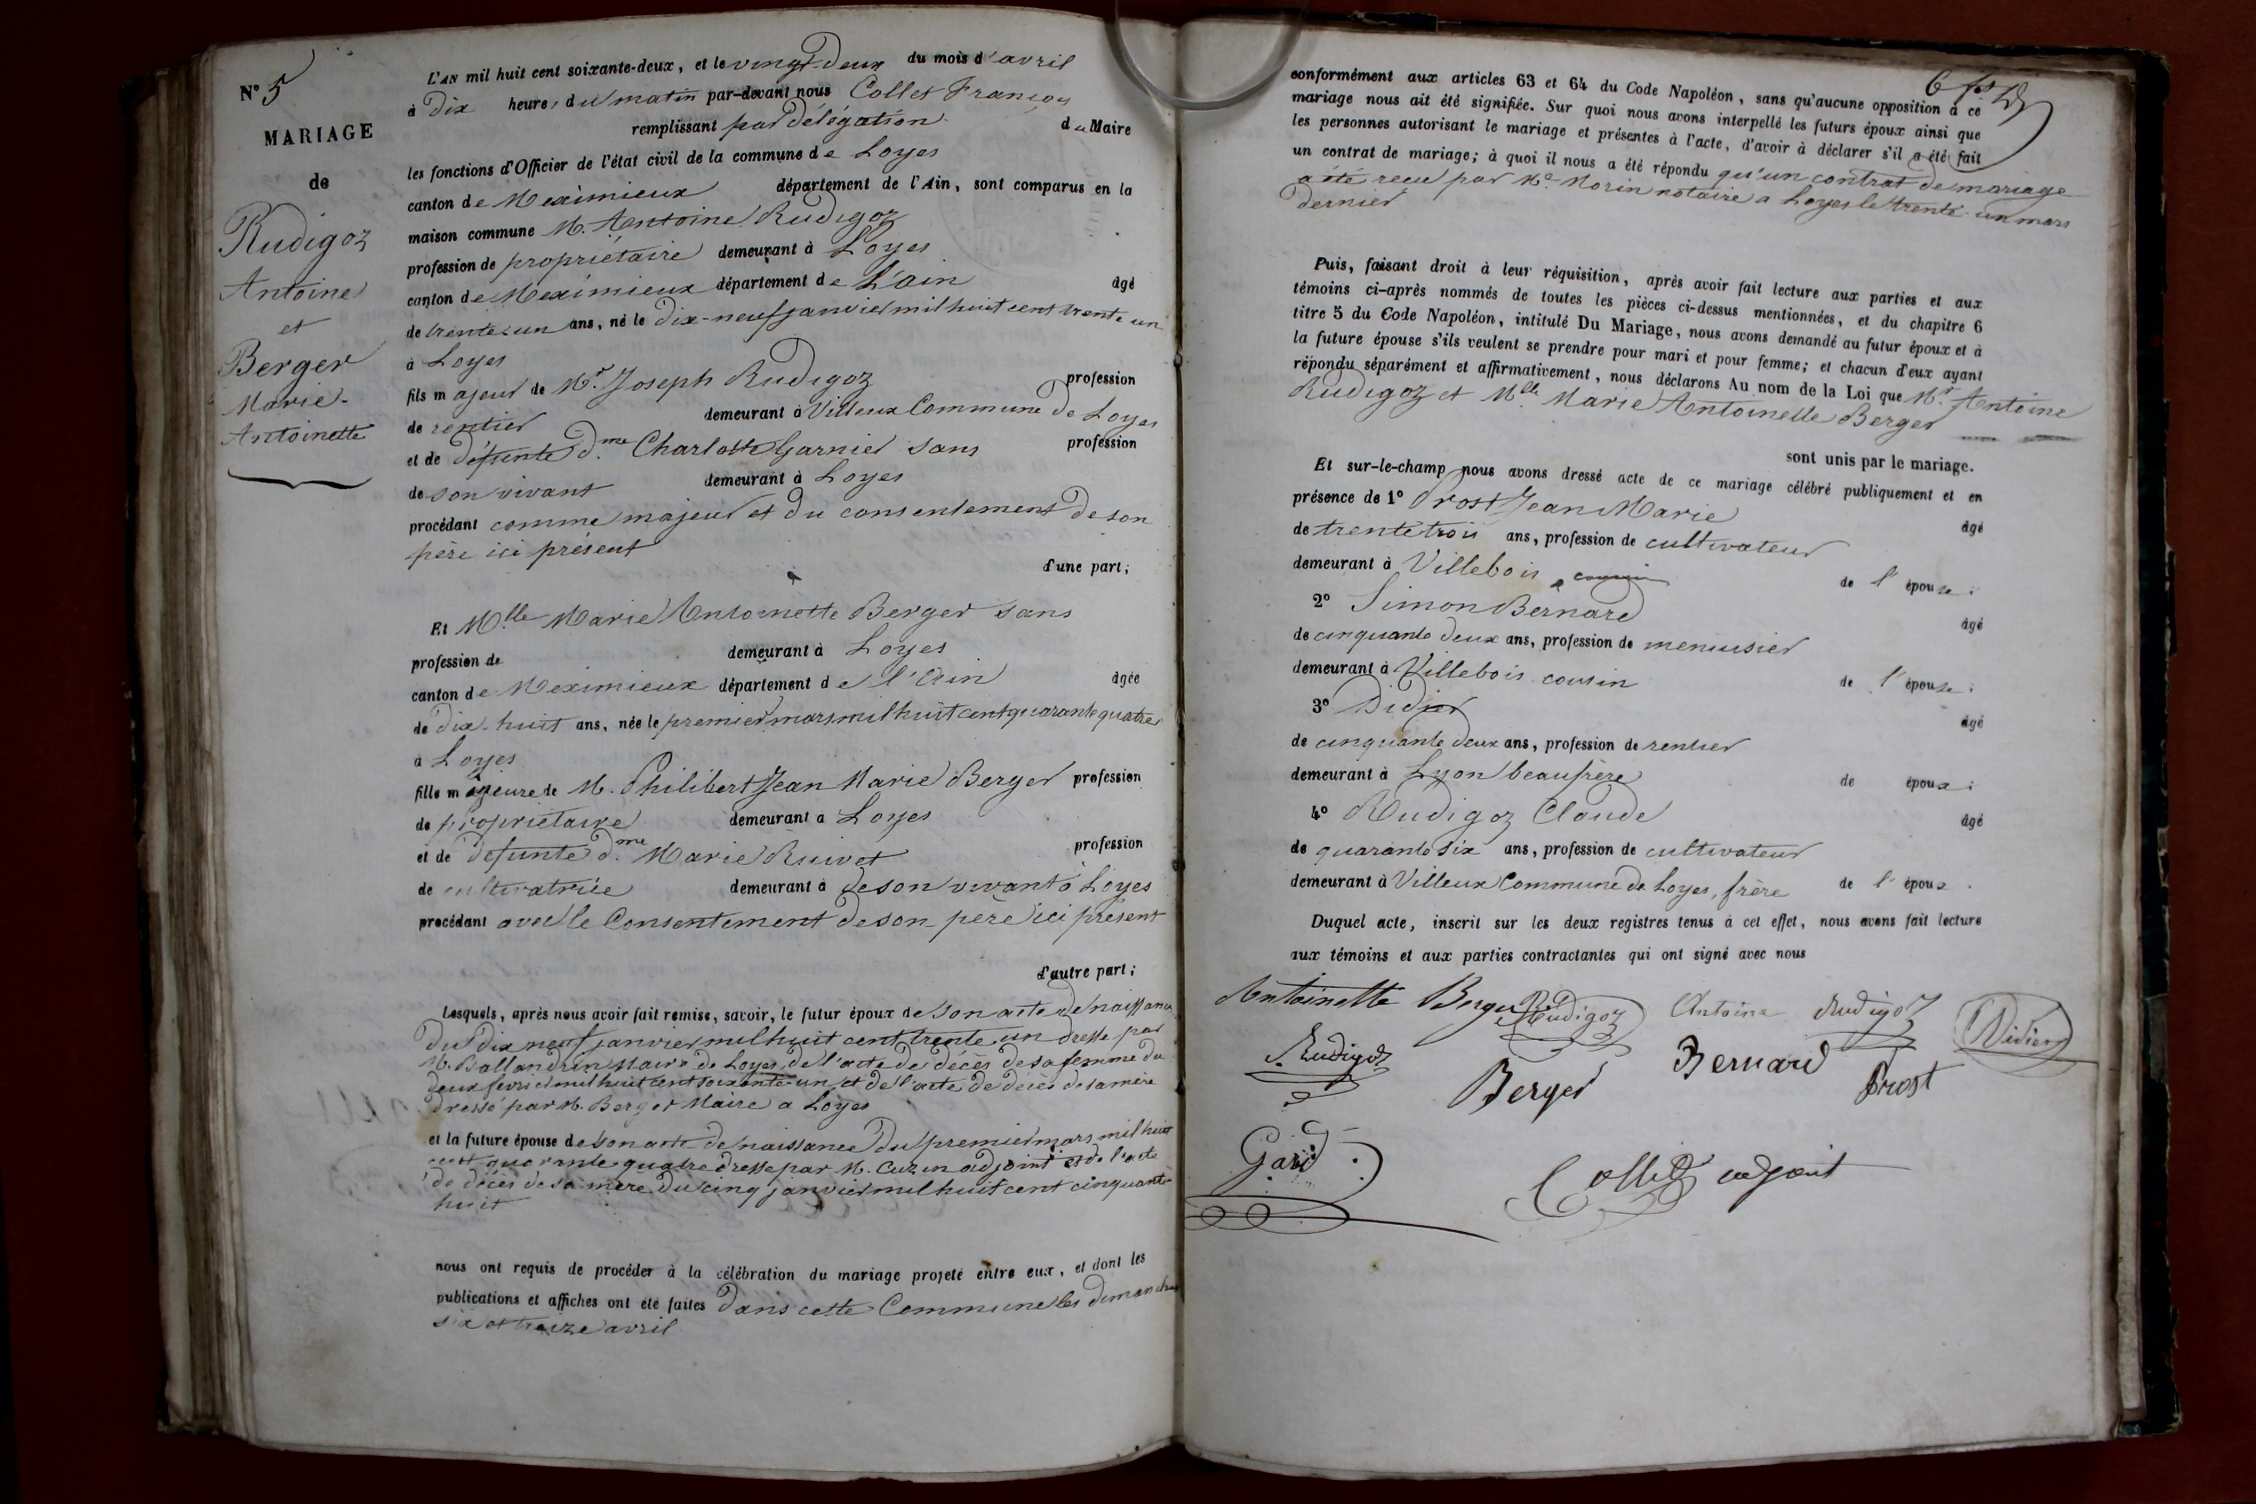 N° 5
MARIAGE
de
Rudigoz
Antoine
et
Berger
Marie-
Antoinette
L'AN mil huit cent soixante-deux, et le vingt-deux du mois d'avril
à Dix heures du matin par-devant nous Collet François
remplissant par délégation du Maire
les fonctions d'Officier de l'état civil de la commune de Loyes
canton de Meximieux département de l'Ain, sont comparus en la
maison commune M. Antoine Rudigoz
profession de propriétaire demeurant à Loyes
canton de Meximieux département de L'ain âgé
de trente-un ans, né le Dix-neuf janvier mil huit cent trente un
à Loyes
fils majeur de Mr. Joseph Rudigoz profession
de rentier demeurant à Villeux Commune de Loyes
et de défunte Dme Charlotte Garnier sans profession
de son vivant demeurant à Loyes
procédant comme majeur et du consentement de son
père ici présent
d'une part;
Et Mlle Marie Antoinette Berger sans
profession de demeurant à Loyes
canton de Meximieux département de l'Ain âgée
de dix-huit ans, née le premier mars mil huit cent quarante quatre
à Loyes
fille majeure de M. Philibert Jean Marie Berger profession
de propriétaire demeurant à Loyes
et de défunte dme Marie Ruivet profession
de cultivatrice demeurant à de son vivant à Loyes
procédant avec le Consentement de son père ici présent
d'autre part;
Lesquels, après nous avoir fait remise, savoir, le futur époux de son acte de naissance
du dix neuf janvier mil huit cent trente un dressé par
M. Ballandrin Maire de Loyes, de l'acte de décès de sa femme du
deux février mil huit cent soixante-un, et de l'acte de décès de sa mère
dressé par M. Berger Maire a Loyes
et la future épouse de son acte de naissance Du premier mars mil huit
cent quarante quatre dressé par M. Cuzin adjoint et de l'acte
de décès de sa mère du cinq janvier mil huit cent cinquante-
huit
nous ont requis de procéder à la célébration du mariage projeté entre eux, et dont les
publications et affiches ont été faites dans cette Commune les dimanches
six et treize avril
6
conformément aux articles 63 et 64 du Code Napoléon, sans qu'aucune opposition à ce
mariage nous ait été signifiée. Sur quoi nous avons interpellé les futurs époux ainsi que
les personnes autorisant le mariage et présentes à l'acte, d'avoir à déclarer s'il a été fait
un contrat de mariage; à quoi il nous a été répondu qu'un contrat de mariage
a été reçu par Me Morin notaire a Loyes le trente-un mars
dernier
Puis, faisant droit à leur réquisition, après avoir fait lecture aux parties et aux
témoins ci-après nommés de toutes les pièces ci-dessus mentionnées, et du chapitre 6
titre 5 du Code Napoléon, intitulé Du Mariage, nous avons demandé au futur époux et à
la future épouse s'ils veulent se prendre pour mari et pour femme; et chacun d'eux ayant
répondu séparément et affirmativement, nous déclarons Au nom de la Loi que Mr. Antoine
Rudigoz et Mlle Marie Antoinette Berger
sont unis par le mariage.
Et sur-le-champ nous avons dressé acte de ce mariage célébré publiquement et en
présence de 1° Prost Jean Marie âgé
de trente trois ans, profession de cultivateur
demeurant à Villebois, cousin de l'épouse;
2° Simon Bernard âgé
de cinquante deux ans, profession de menuisier
demeurant à Villebois cousin de l'épouse;
3° Didier âgé
de cinquante deux ans, profession de rentier
demeurant à Lyon beaufrère de époux;
4° Rudigoz Claude âgé
de quarante six ans, profession de cultivateur
demeurant à Villeux Commune de Loyes, frère de l'époux.
Duquel acte, inscrit sur les deux registres tenus à cet effet, nous avons fait lecture
aux témoins et aux parties contractantes qui ont signé avec nous
Antoinette Berger Rudigoz Antoine Rudigoz Didier
Rudigoz Berger Bernard Prost
Collet adjoint